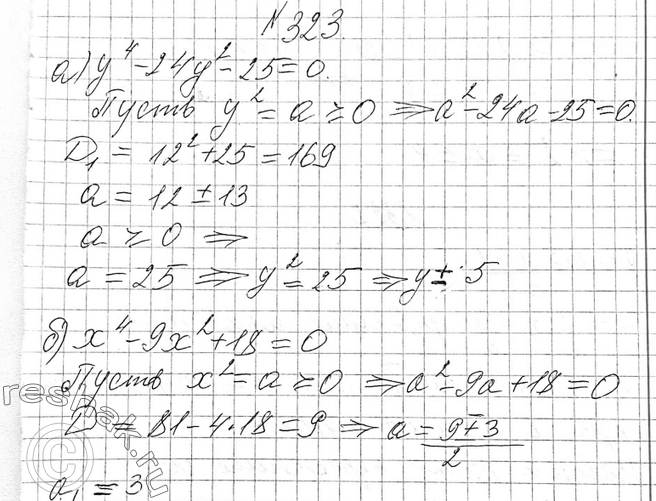 № 323
а) y⁴ - 24y² - 25 = 0.
Пусть y² = a ≥ 0 ⇒ a² - 24a - 25 = 0.
D₁ = 12² + 25 = 169
a = 12 ± 13
a ≥ 0 ⇒
a = 25 ⇒ y² = 25 ⇒ y ± 5
б) x⁴ - 9x² + 18 = 0
Пусть x² = a ≥ 0 ⇒ a² - 9a + 18 = 0
D = 81 - 4·18 = 9 ⇒ a = (9 ± 3)/2
a₁ = 3
reshak.ru
©